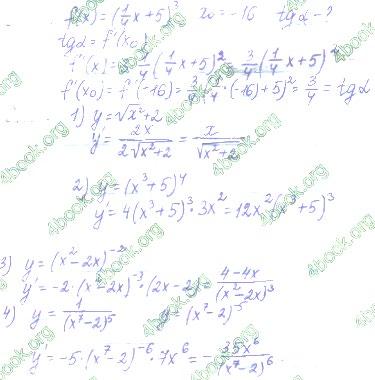 f(x) = (1/4 x + 5)³   x₀ = -16   tg α - ?
tg α = f'(x₀)
f'(x) = 3·1/4 (1/4 x + 5)² = 3/4 (1/4 x + 5)²
f'(x₀) = f'(-16) = 3/4 (1/4 · (-16) + 5)² = 3/4 = tg α
1) y = √(x² + 2)
y' = 2x / (2√(x² + 2)) = x / √(x² + 2)
2) y = (x³ + 5)⁴
y' = 4(x³ + 5)³ · 3x² = 12x²(x³ + 5)³
3) y = (x² - 2x)⁻²
y' = -2 · (x² - 2x)⁻³ · (2x - 2) = (4 - 4x) / (x² - 2x)³
4) y = 1 / (x⁷ - 2)⁵   y = (x⁷ - 2)⁻⁵
y' = -5 · (x⁷ - 2)⁻⁶ · 7x⁶ = - 35x⁶ / (x⁷ - 2)⁶
4book.org